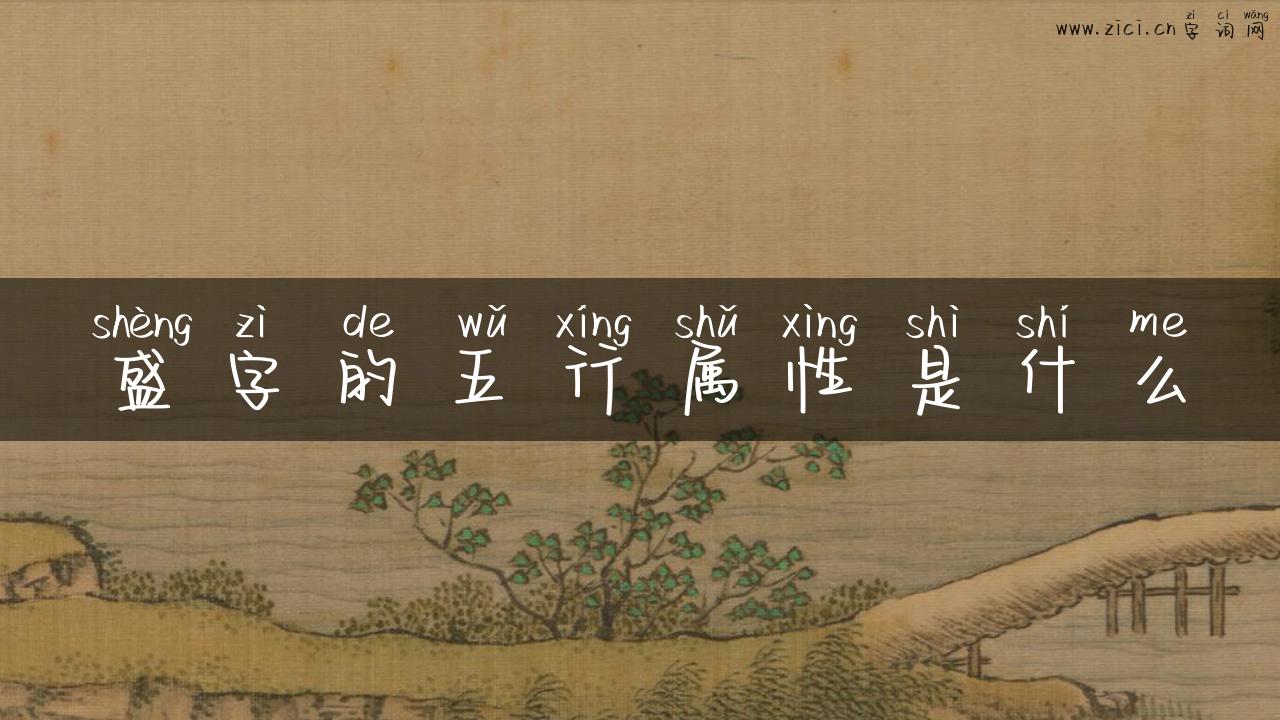 zì cí wǎng
www.zici.cn 字词网
shèng zì de wǔ xíng shǔ xìng shì shí me
盛字的五行属性是什么